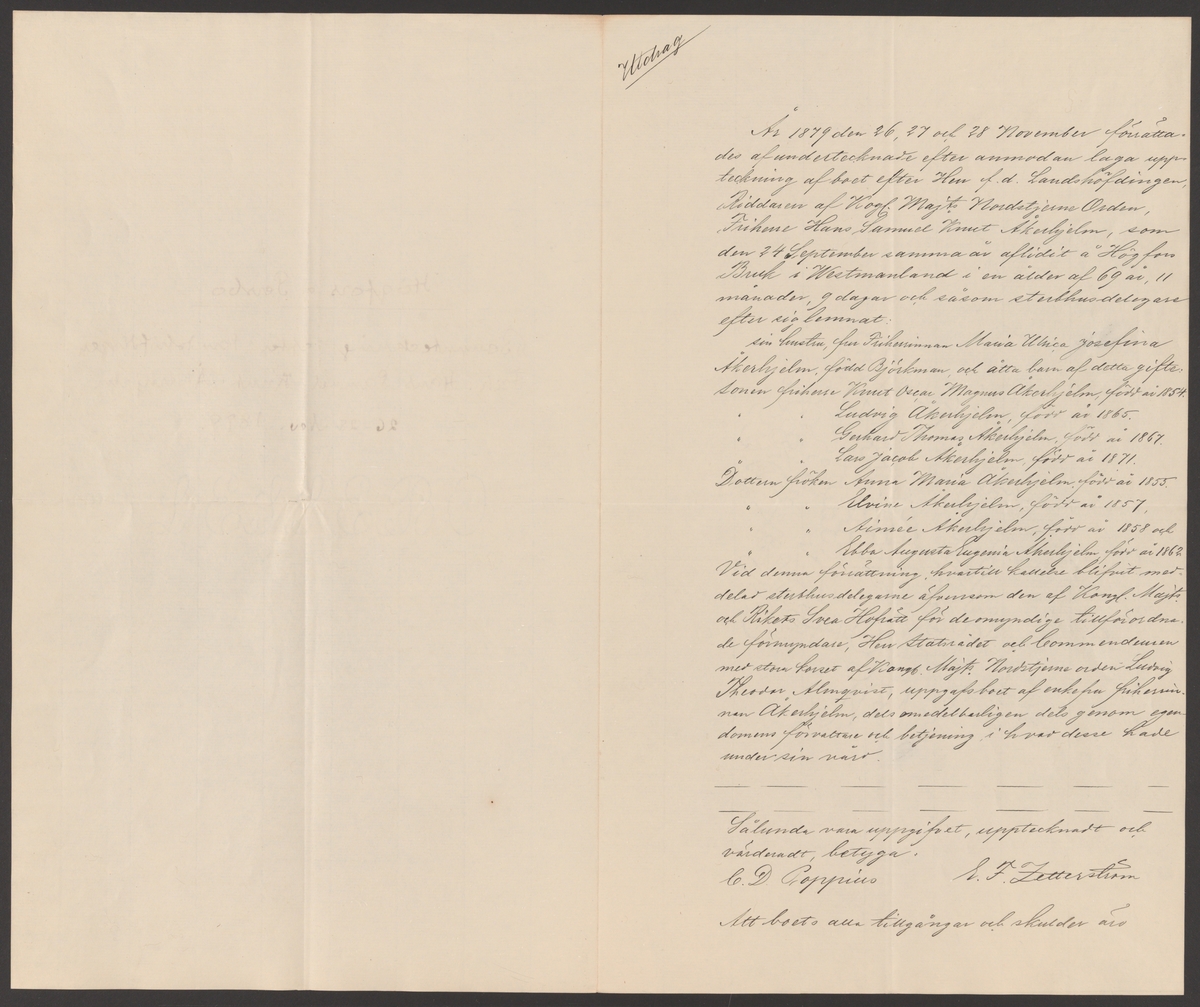 Utdrag
År 1879 den 26, 27 och 28 November förrätta-
des af undertecknade efter anmodan laga upp-
teckning af boet efter Herr f.d. Landshöfdingen,
Riddaren af Kogl. Majts Nordstjerne Orden,
Friherre Hans Samuel Knut Åkerhjelm, som
den 24 September samma år aflidit å Högfors
Bruk i Westmanland i en ålder af 69 år, 11
månader, 9 dagar och såsom sterbhusdelegare
efter sig lemnat:
sin hustru, fru Friherrinnan Maria Ulrica Josefina
Åkerhjelm, född Björkman, och åtta barn af detta gifte:
sonen friherre Knut Oscar Magnus Åkerhjelm, född år 1854.
" " Ludvig Åkerhjelm, född år 1865.
" " Gerhard Thomas Åkerhjelm, född år 1867.
" " Lars Jacob Åkerhjelm, född år 1871.
Dottern fröken Anna Maria Åkerhjelm, född år 1855.
" " Elvine Åkerhjelm, född år 1857,
" " Aimée Åkerhjelm, född år 1858 och
" " Ebba Augusta Eugenia Åkerhjelm, född år 1862.
Vid denna förrättning, hvartill kallelse blifvit med-
delad sterbhusdelegarne äfvensom den af Kongl. Majts
och Rikets Svea Hofrätt för de omyndige tillförordna-
de förmyndare, Herr Statsrådet och Commendeuren
med stora korset af Kongl. Majts Nordstjerne orden Ludvig
Theodor Almqvist, uppgafs boet af enkefru friherrin-
nan Åkerhjelm, dels omedelbarligen dels genom egen-
domens förvaltare och betjening i hvad desse hade
under sin vård.
Sålunda vara uppgifvet, upptecknadt och
värderadt, betyga.
C. D Poppius E. F. Zetterström
Att boets alla tillgångar och skulder äro